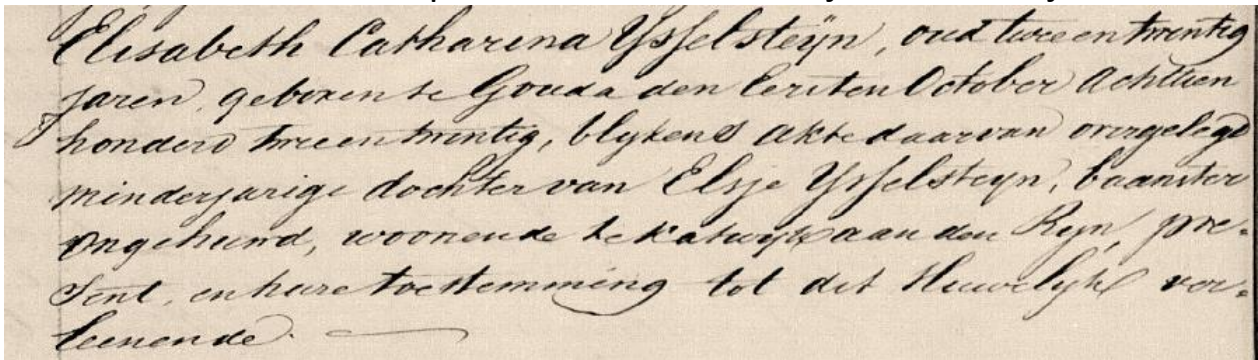 Elisabeth Catharina Ysselsteijn, oud twee en twintig
jaren, geboren te Gouda den Eersten October Achttien
honderd twee en twintig, blykens akte daarvan overgelegd
minderjarige dochter van Elsje Ysselsteyn, baanster
ongehuwd, woonende te Katwyk aan den Ryn, pre-
sent, en hare toestemming tot dit Huwelyk ver-
leenende.